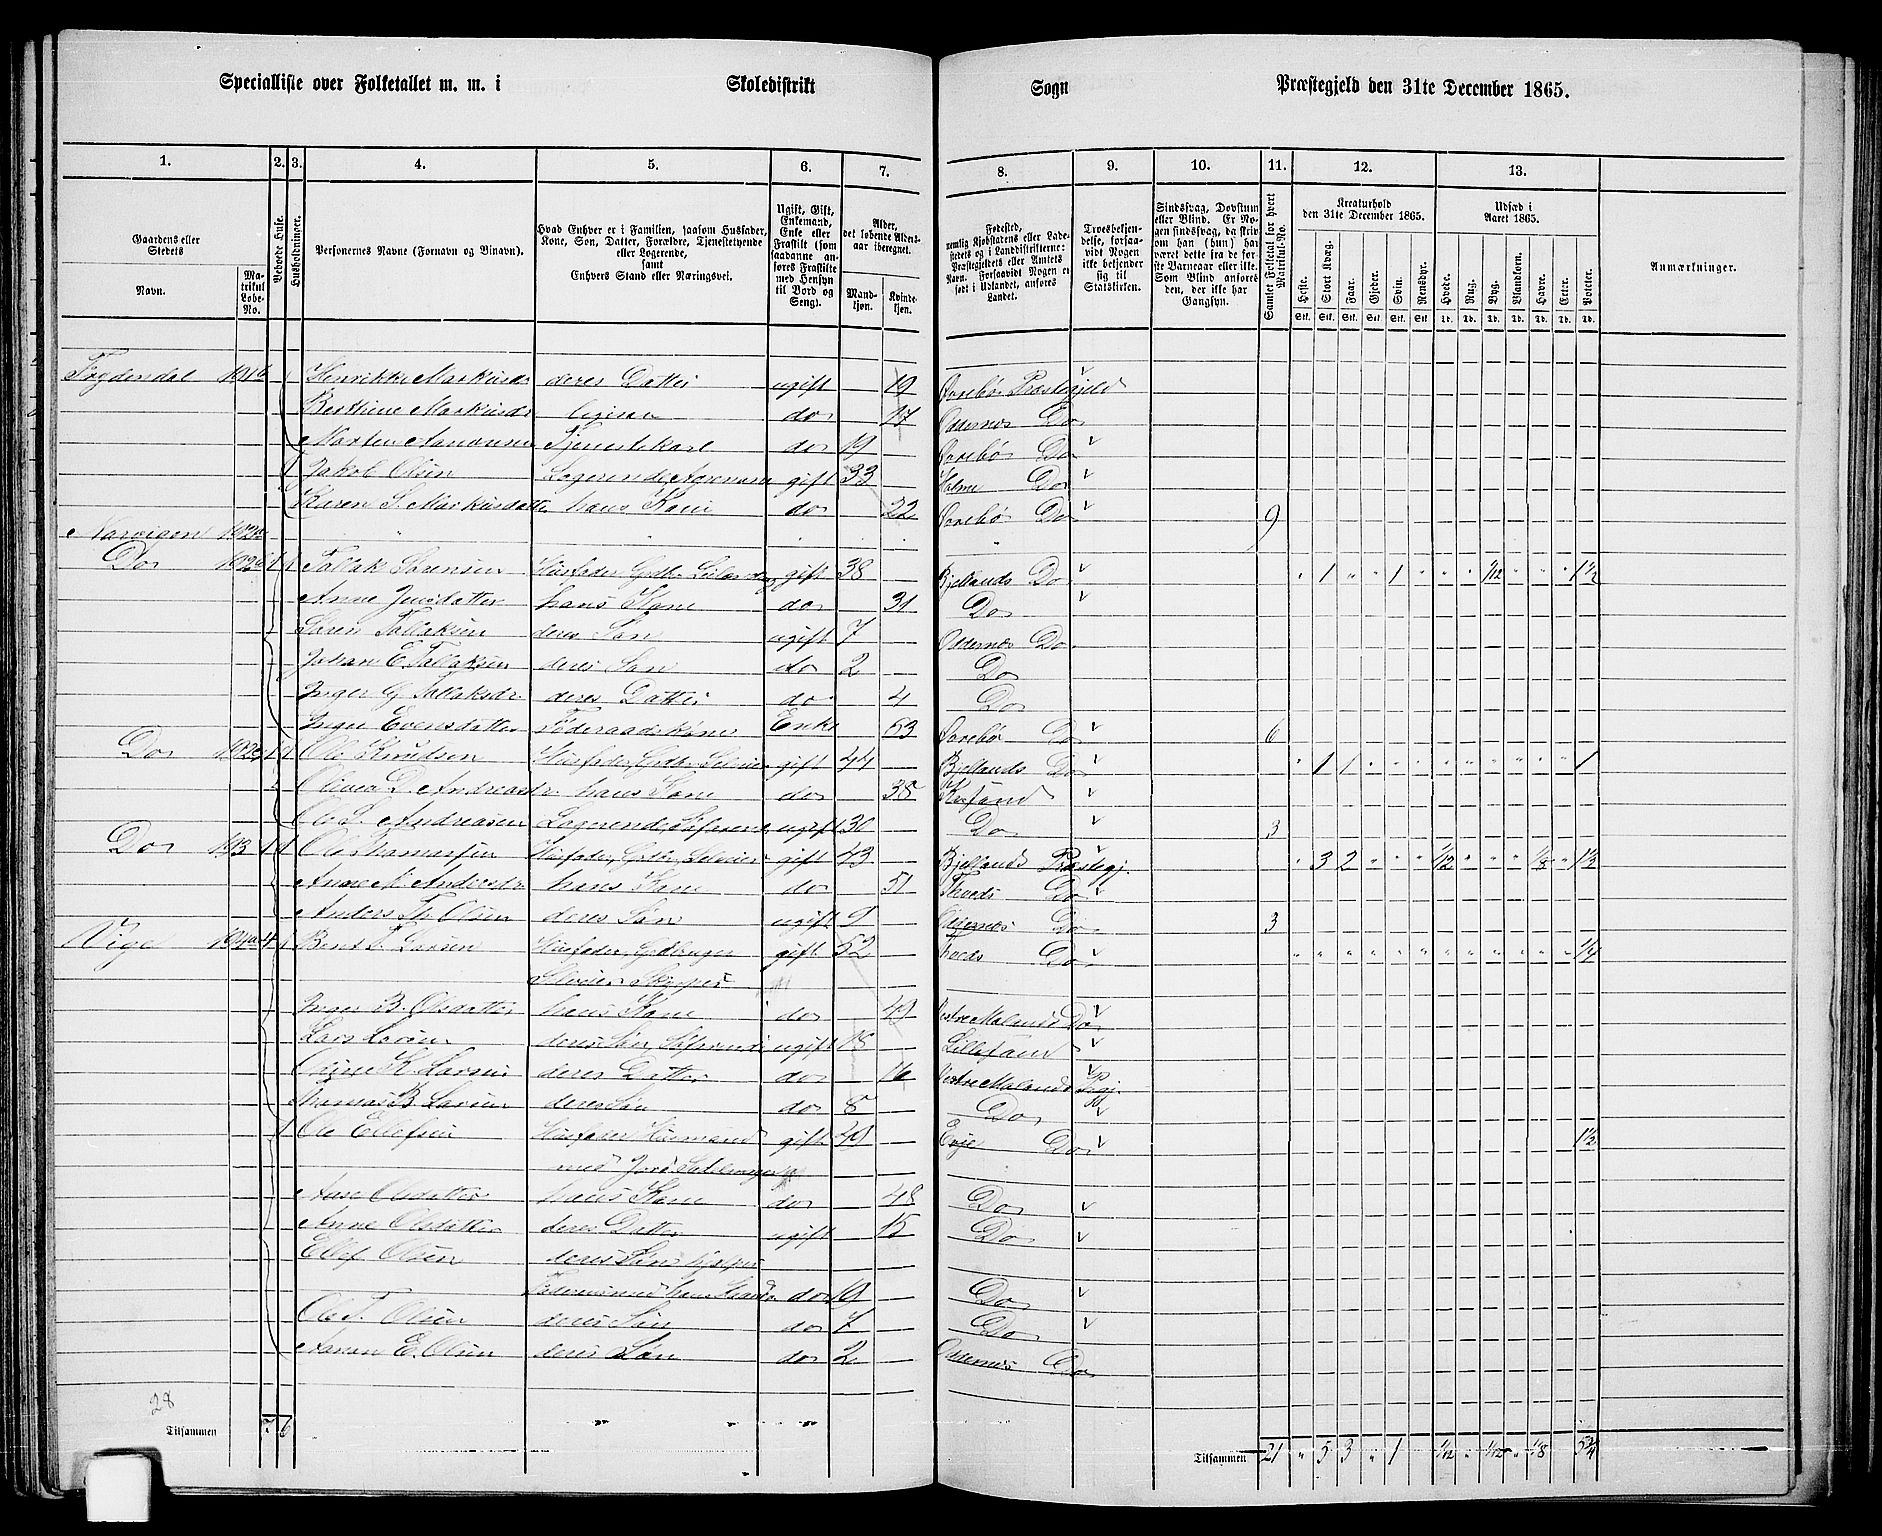 Specialliste over Folketallet m. m. i Skoledistrikt Sogn Præstegjeld den 31te December 1865.
1. 2. 3. 4. 5. 6. 7. 8. 9. 10. 11. 12. 13.
Gaardens eller Stedets Navn.
Matrikul Løbe-No.
Beboede Huse.
Husholdninger.
Personernes Navne (Fornavn og Binavn).
Hvad Enhver er i Familien, saasom Husfader, Kone, Søn, Datter, Forældre, Tjenestetyende eller Logerende, samt Enhvers Stand eller Næringsvei.
Ugift, Gift, Enkemand, Enke eller Fraskilt (som saadanne anføres Fraskilte med Hensyn til Bord og Seng).
Alder, det løbende Aldersaar iberegnet.
Mandkjøn. Kvindekjøn.
Fødested, nemlig Kjøbstadens eller Ladestedets og i Landdistrikterne: Præstegjeldets eller Amtets Navn. Forsaavidt Nogen er født i Udlandet, anføres Landet.
Troesbekjendelse, forsaavidt Nogen ikke bekjender sig til Statskirken.
Sindssvag, Døvstum eller Blind. Er Nogen sindssvag, da skriv om han (hun) har været dette fra de første Barneaar eller ikke. Som Blind anføres den, der ikke har Gangsyn.
Samlet Folketal for hvert Matrikul-No.
Kreaturhold den 31te December 1865.
Heste. Stort Kvæg. Faar. Gjeder. Svin. Rensdyr.
Udsæd i Aaret 1865.
Hvede. Rug. Byg. Blandkorn. Havre. Erter. Poteter.
Anmærkninger.
Frydendal 101b Henrikke Markusdr deres Datter ugift 19 Øvrebø Præstegjeld
Berthine Markusdr ligesaa do 17 Oddernes Do
Morten Amonsen Tjenestekarl do 19 Øvrebø Do
Jakob Olsen Logerende gift 33 Holme Do
Karen S. Markusdatter hans Kone do 22 Øvrebø Do 9
Narvigen 102a
Do 102b 1 1 Tallak Sørensen Husfader, Grdbr. gift 38 Bjellands Do " 1 " " 1 " " " 1/12 " " " 1 1/2
Anne Jensdatter hans Kone do 31 Do
Søren Tallaksen deres Søn ugift 7 Oddernæs Do
Johan E. Tallaksen deres Søn do 2 Do
Inger G. Tallaksdr. deres Datter do 4 Do
Inger Evensdatter Føderaadskone Enke 53 Øvrebø Do 6
Do 102c 1 1 Ole Knudsen Husfader, Grdbr. Selveier gift 44 Bjellands Do " 1 1 " " " " " " " " " 1
Olivia D. Andreasdr. hans Kone do 38 Krsand
Ole S. Andreasen Logerende, ugift 30 Do 3
Do 103 1 1 Ole Thomassen Husfader, Grdbr, Selveier gift 43 Bjellands Præstegj. " 3 2 " " " 1/12 " " " 1/8 " 1 1/2
Anne M. Andersdr hans Kone do 51 Tveds Do
Anders Th. Olsen deres Søn ugift 9 Oddernæs Do 3
Vige 104a 4 1 Bent T. Larsen Husfader, Grdbruger gift 52 Tveds Do " " " " " " " " " " " " 1/4
Selveier Skipper
Inger B. Olsdatter hans Kone do 49 Vestre Molands Do
Lars Larsen deres Søn, Sømand ugift 18 Lillesand
K. Larsen deres Datter do 16 Vestre Molands Prgj.
Thomas B. Larsen deres Søn do 8 Do
1 Ole Ellefsen Husfader Husmand gift 49 Evje Do 1 1/2
med Jord
Anne Olsdatter hans Kone do 48 Do
Anne Olsdatter deres Datter ugift 15 Do
Ellef Olsen deres Søn hjelper
Faderen med do 19 Do
Ole T. Olsen deres Søn do 7 Do
E. Olsen deres Søn do 2 Oddernæs Do
28
Tilsammen 7 6 " " "
Tilsammen 21 " 5 3 " 1 1/12 " 1/12 " 1/8 5 3/4